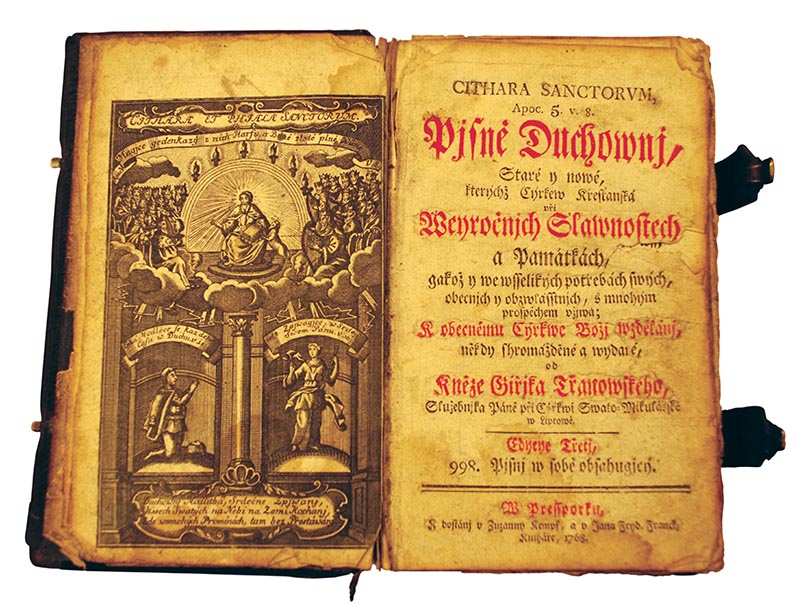 CITHARA ET PHIALA SANCTORUM.
Magice gedenkazy z nich Harfu a Bané zlaté plné
Modlece se každého
Času w Duchu.
Zpjwagjce
Pánu
Duchownj Modlitba, Srdečné Zpjwanj,
Wssech Swatých na Nebi na Zemi Kochanj,
Zde w mnohých Proměnách, tam bez Přestáwánj
CITHARA SANCTORVM,
Apoc. 5. v. 8.
Pjsně Duchownj,
Staré y nowé,
kterýchž Cýrkew Křestianská
při
Weyročnjch Slawnostech
a Památkách,
gakož y we wsselikých potřebách swých,
obecných y obzwlásstnjch, s mnohým
prospěchem vžjwá;
K obecnému Cýrkwe Božj wzdělánj,
někdy shromážděné a wydané,
od
Kněze Giřjka Třanowského,
Služebnjka Páně při Cýrkwi Swato-Mikulásské
w Liptowě.
Edycye Třetj,
998. Pjsnj w sobě obsahugjcý.
W Pressporku,
K dostánj v Zuzanny Kempf, a v Jana Fryd. Franck,
Knihaře, 1768.